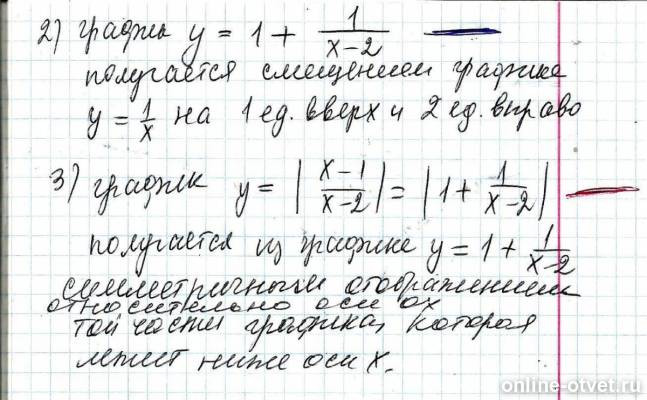 2) график y = 1 + 1/(x-2)
получается смещением графика
y = 1/x на 1 ед. вверх и 2 ед. вправо
3) график y = |(x-1)/(x-2)| = |1 + 1/(x-2)|
получается из графика y = 1 + 1/(x-2)
симметричным отображением
относительно оси ох
той части графика, которая
лежит ниже оси x.
online-otvet.ru